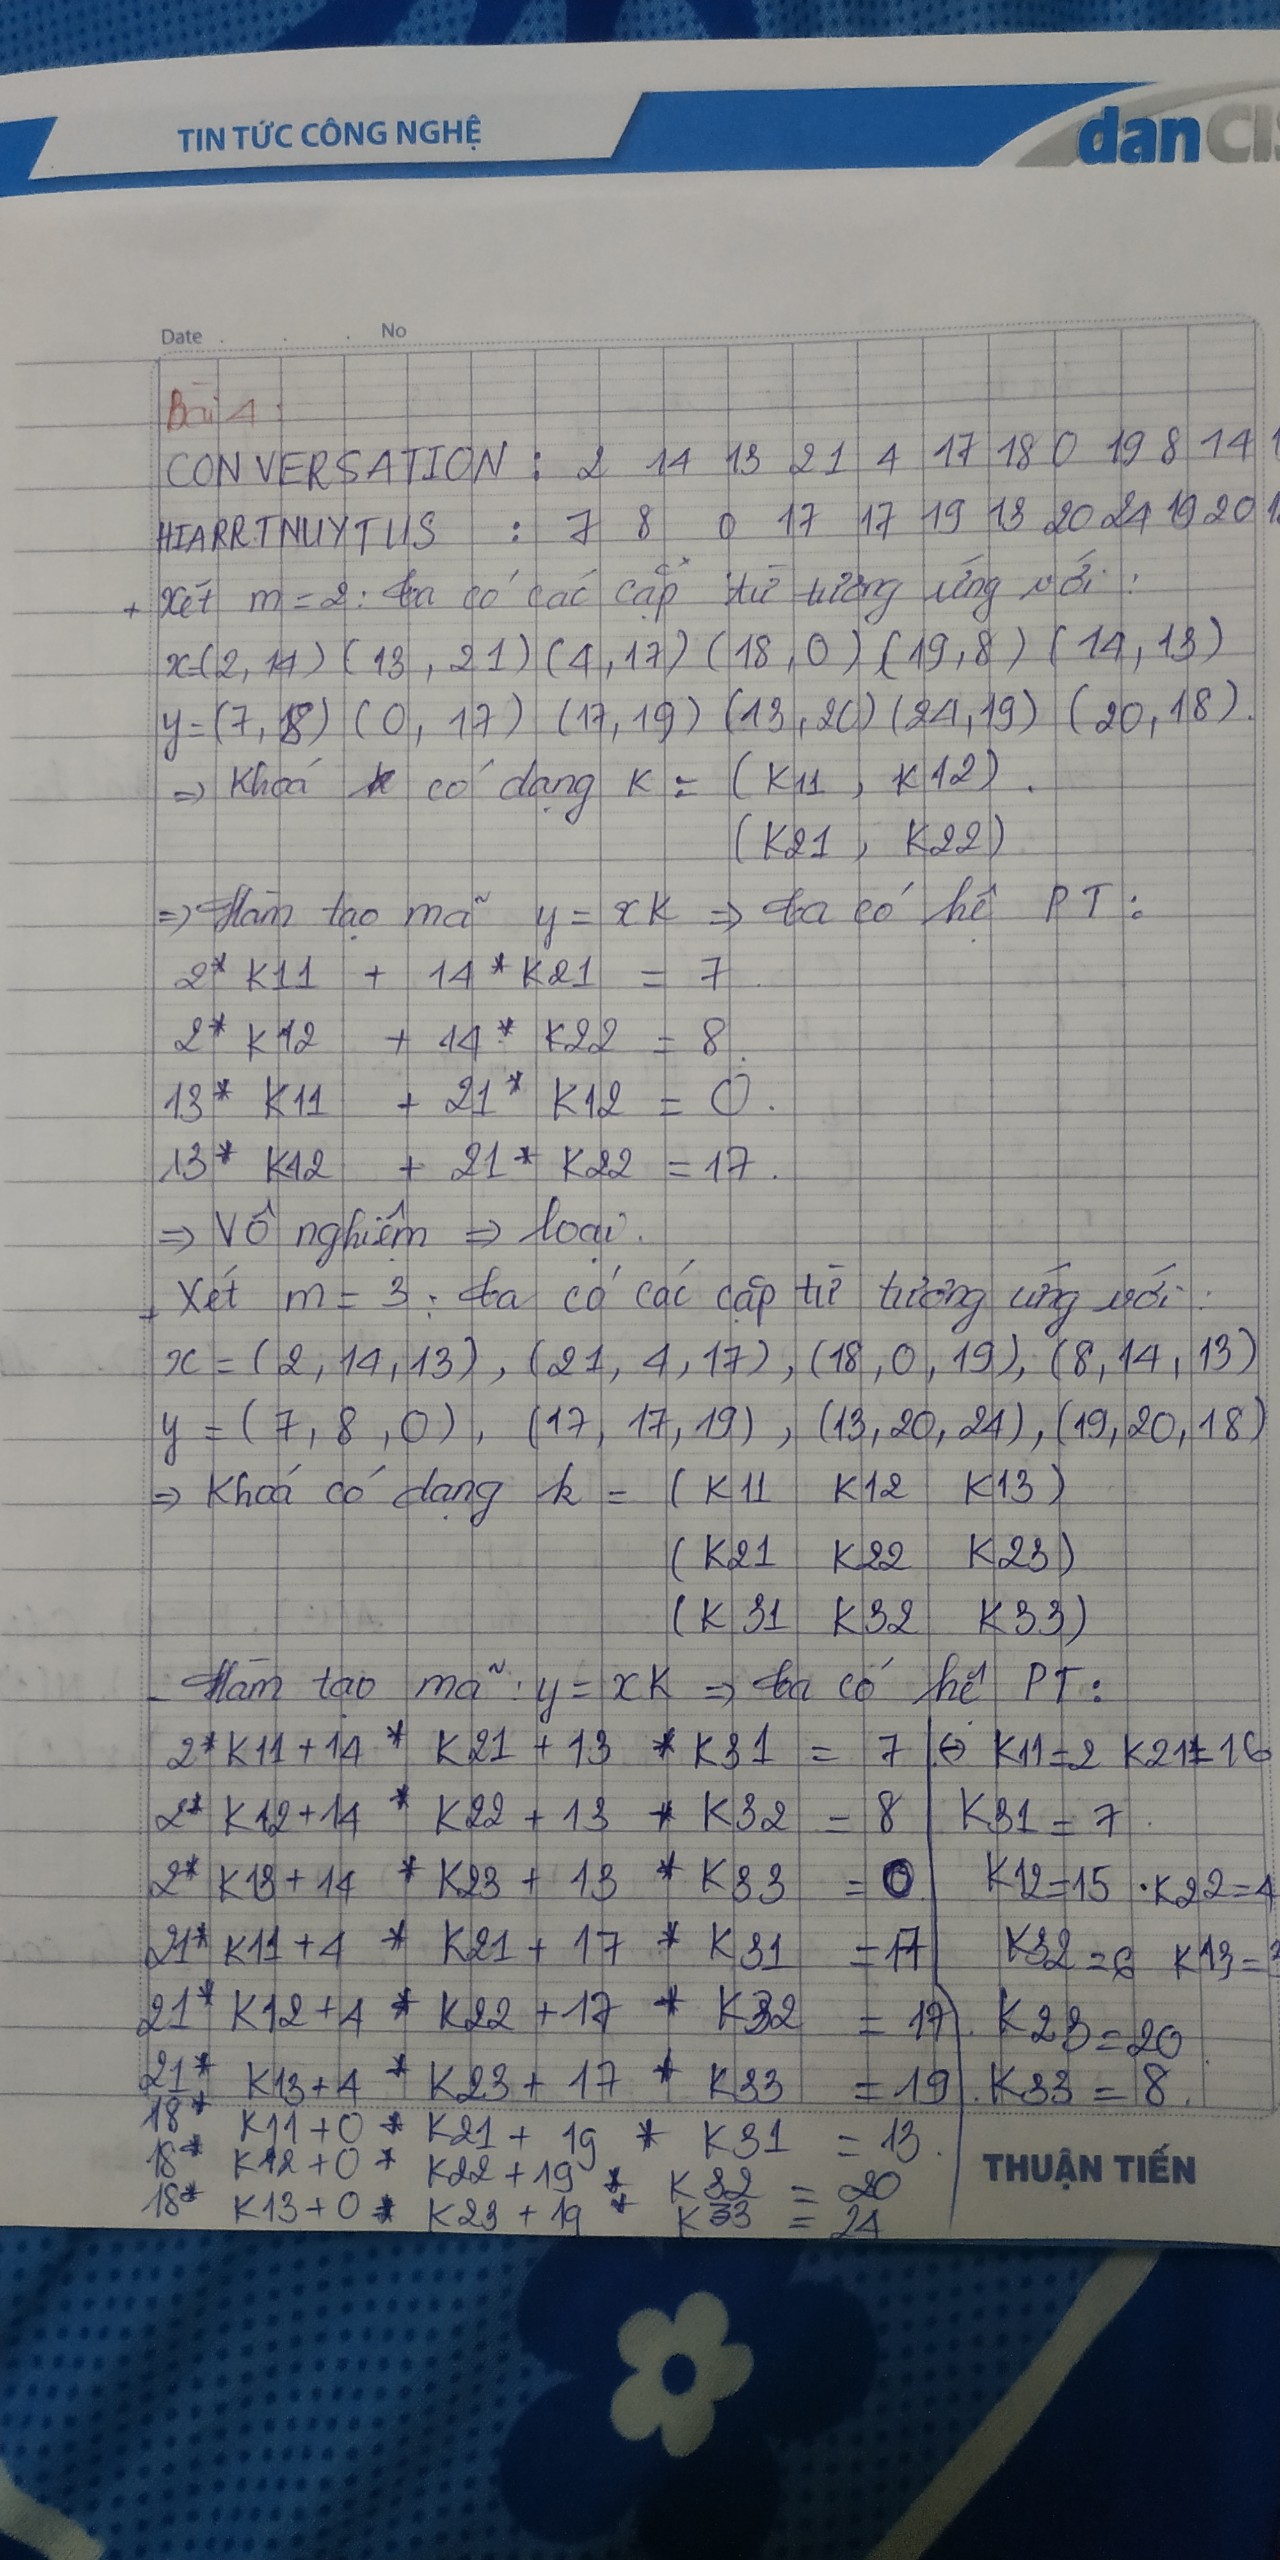 TIN TỨC CÔNG NGHỆ
dan
Date No
Bài 4:
CONVERSATION : 2 14 13 21 4 17 18 0 19 8 14
HIARRTNUYTUS : 7 8 0 17 17 19 13 20 24 19 20
+ Xét m = 2 : ta có các cặp từ tương ứng với :
x=(2,14) (13, 21) (4,17) (18,0) (19,8) (14,13)
y=(7,8) (0, 17) (17,19) (13,20) (24,19) (20,18).
=> Khoá k có dạng K = (K11 , K12).
(K21 , K22)
=> Hàm tạo mã y = xK => ta có hệ PT :
2* K11 + 14* K21 = 7
2* K12 + 14* K22 = 8
13* K11 + 21* K12 = 0.
13* K12 + 21* K22 = 17.
=> Vô nghiệm => loại.
+ Xét m = 3 : ta có các cặp từ tương ứng với :
x = (2, 14, 13), (21, 4, 17), (18, 0, 19), (8, 14, 13)
y = (7, 8, 0), (17, 17, 19), (13, 20, 24), (19, 20, 18)
=> Khoá có dạng k = (K11 K12 K13)
(K21 K22 K23)
(K31 K32 K33)
- Hàm tạo mã : y = xK => ta có hệ PT :
2* K11 + 14 * K21 + 13 * K31 = 7 <=> K11 = 2 K21 = 16
2* K12 + 14 * K22 + 13 * K32 = 8 K31 = 7
2* K13 + 14 * K23 + 13 * K33 = 0 K12 = 15 K22 = 4
21* K11 + 4 * K21 + 17 * K31 = 17 K32 = 6 K13 =
21* K12 + 4 * K22 + 17 * K32 = 17 K23 = 20
21* K13 + 4 * K23 + 17 * K33 = 19 K33 = 8.
18* K11 + 0 * K21 + 19 * K31 = 13.
18* K12 + 0 * K22 + 19 * K32 = 20
18* K13 + 0 * K23 + 19 * K33 = 24
THUẬN TIẾN